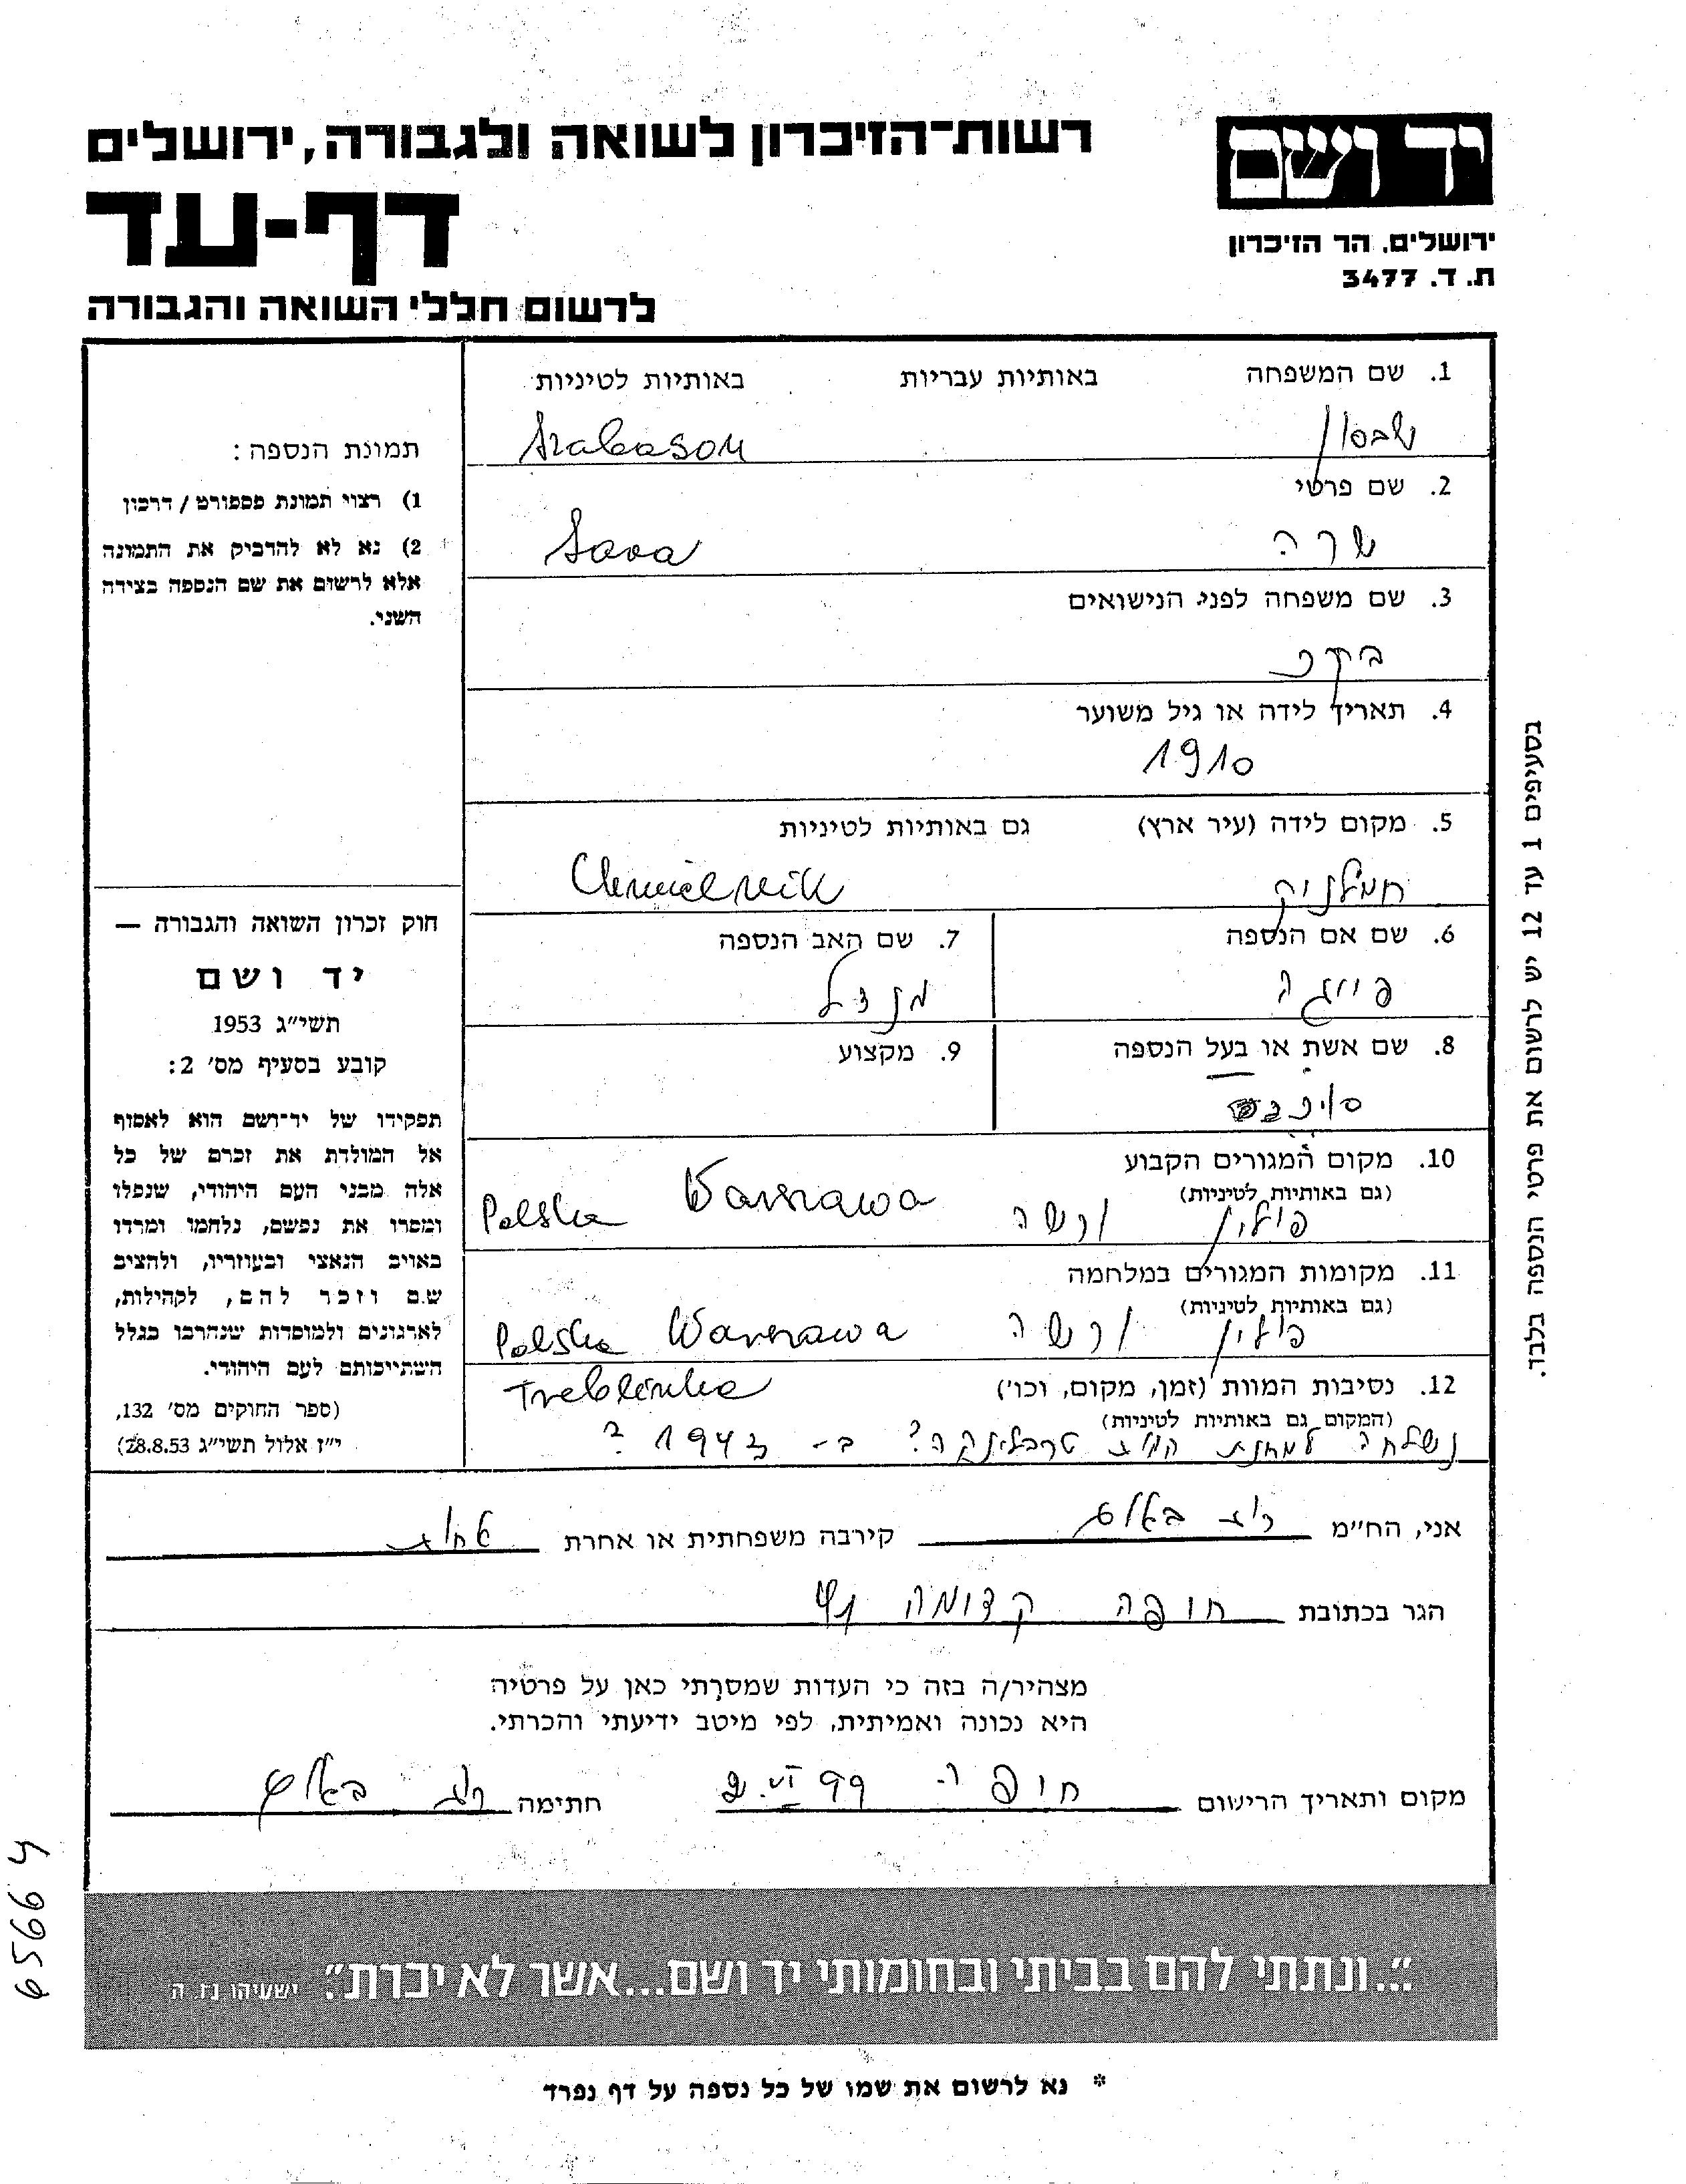 יד ושם
ירושלים. הר הזיכרון
ת. ד. 3477
רשות-הזיכרון לשואה ולגבורה, ירושלים
דף-עד
לרשום חללי השואה והגבורה
תמונת הנספה:
1) רצוי תמונת פספורט / דרכון
2) נא לא להדביק את התמונה
אלא לרשום את שם הנספה בצידה
השני.
חוק זכרון השואה והגבורה —
יד ושם
תשי״ג 1953
קובע בסעיף מס׳ 2:
תפקידו של יד־ושם הוא לאסוף
אל המולדת את זכרם של כל
אלה מבני העם היהודי, שנפלו
ומסרו את נפשם, נלחמו ומרדו
באויב הנאצי ובעוזריו, ולהציב
שם וזכר להם, לקהילות,
לארגונים ולמוסדות שנהרבו בגלל
השתייכותם לעם היהודי.
(ספר החוקים מס׳ 132,
י״ז אלול תשי״ג 28.8.53)
1. שם המשפחה באותיות עבריות באותיות לטיניות
שבסון Szabason
2. שם פרטי
שרה Sara
3. שם משפחה לפני הנישואים
4. תאריך לידה או גיל משוער
1910
5. מקום לידה (עיר ארץ) גם באותיות לטיניות
חמילניק Chmielnik
6. שם אם הנספה
פייגה
7. שם האב הנספה
מנדל
8. שם אשת או בעל הנספה
9. מקצוע
10. מקום המגורים הקבוע
(גם באותיות לטיניות)
פולין ורשה Warszawa Polska
11. מקומות המגורים במלחמה
(גם באותיות לטיניות)
פולין ורשה Warszawa Polska
12. נסיבות המוות (זמן, מקום, וכו׳) Treblinka
(המקום גם באותיות לטיניות)
נשלחה למחנה טרבלינקה? ב- 1943 ?
בסעיפים 1 עד 12 יש לרשום את פרטי הנספה בלבד.
אני, הח״מ קירבה משפחתית או אחרת
הגר בכתובת חופה קדומה
מצהיר/ה בזה כי העדות שמסרתי כאן על פרטיה
היא נכונה ואמיתית, לפי מיטב ידיעתי והכרתי.
מקום ותאריך הרישום 99 חתימה
65664
״...ונתתי להם בביתי ובחומותי יד ושם...אשר לא יכרת״. ישעיהו נז. ה
* נא לרשום את שמו של כל נספה על דף נפרד